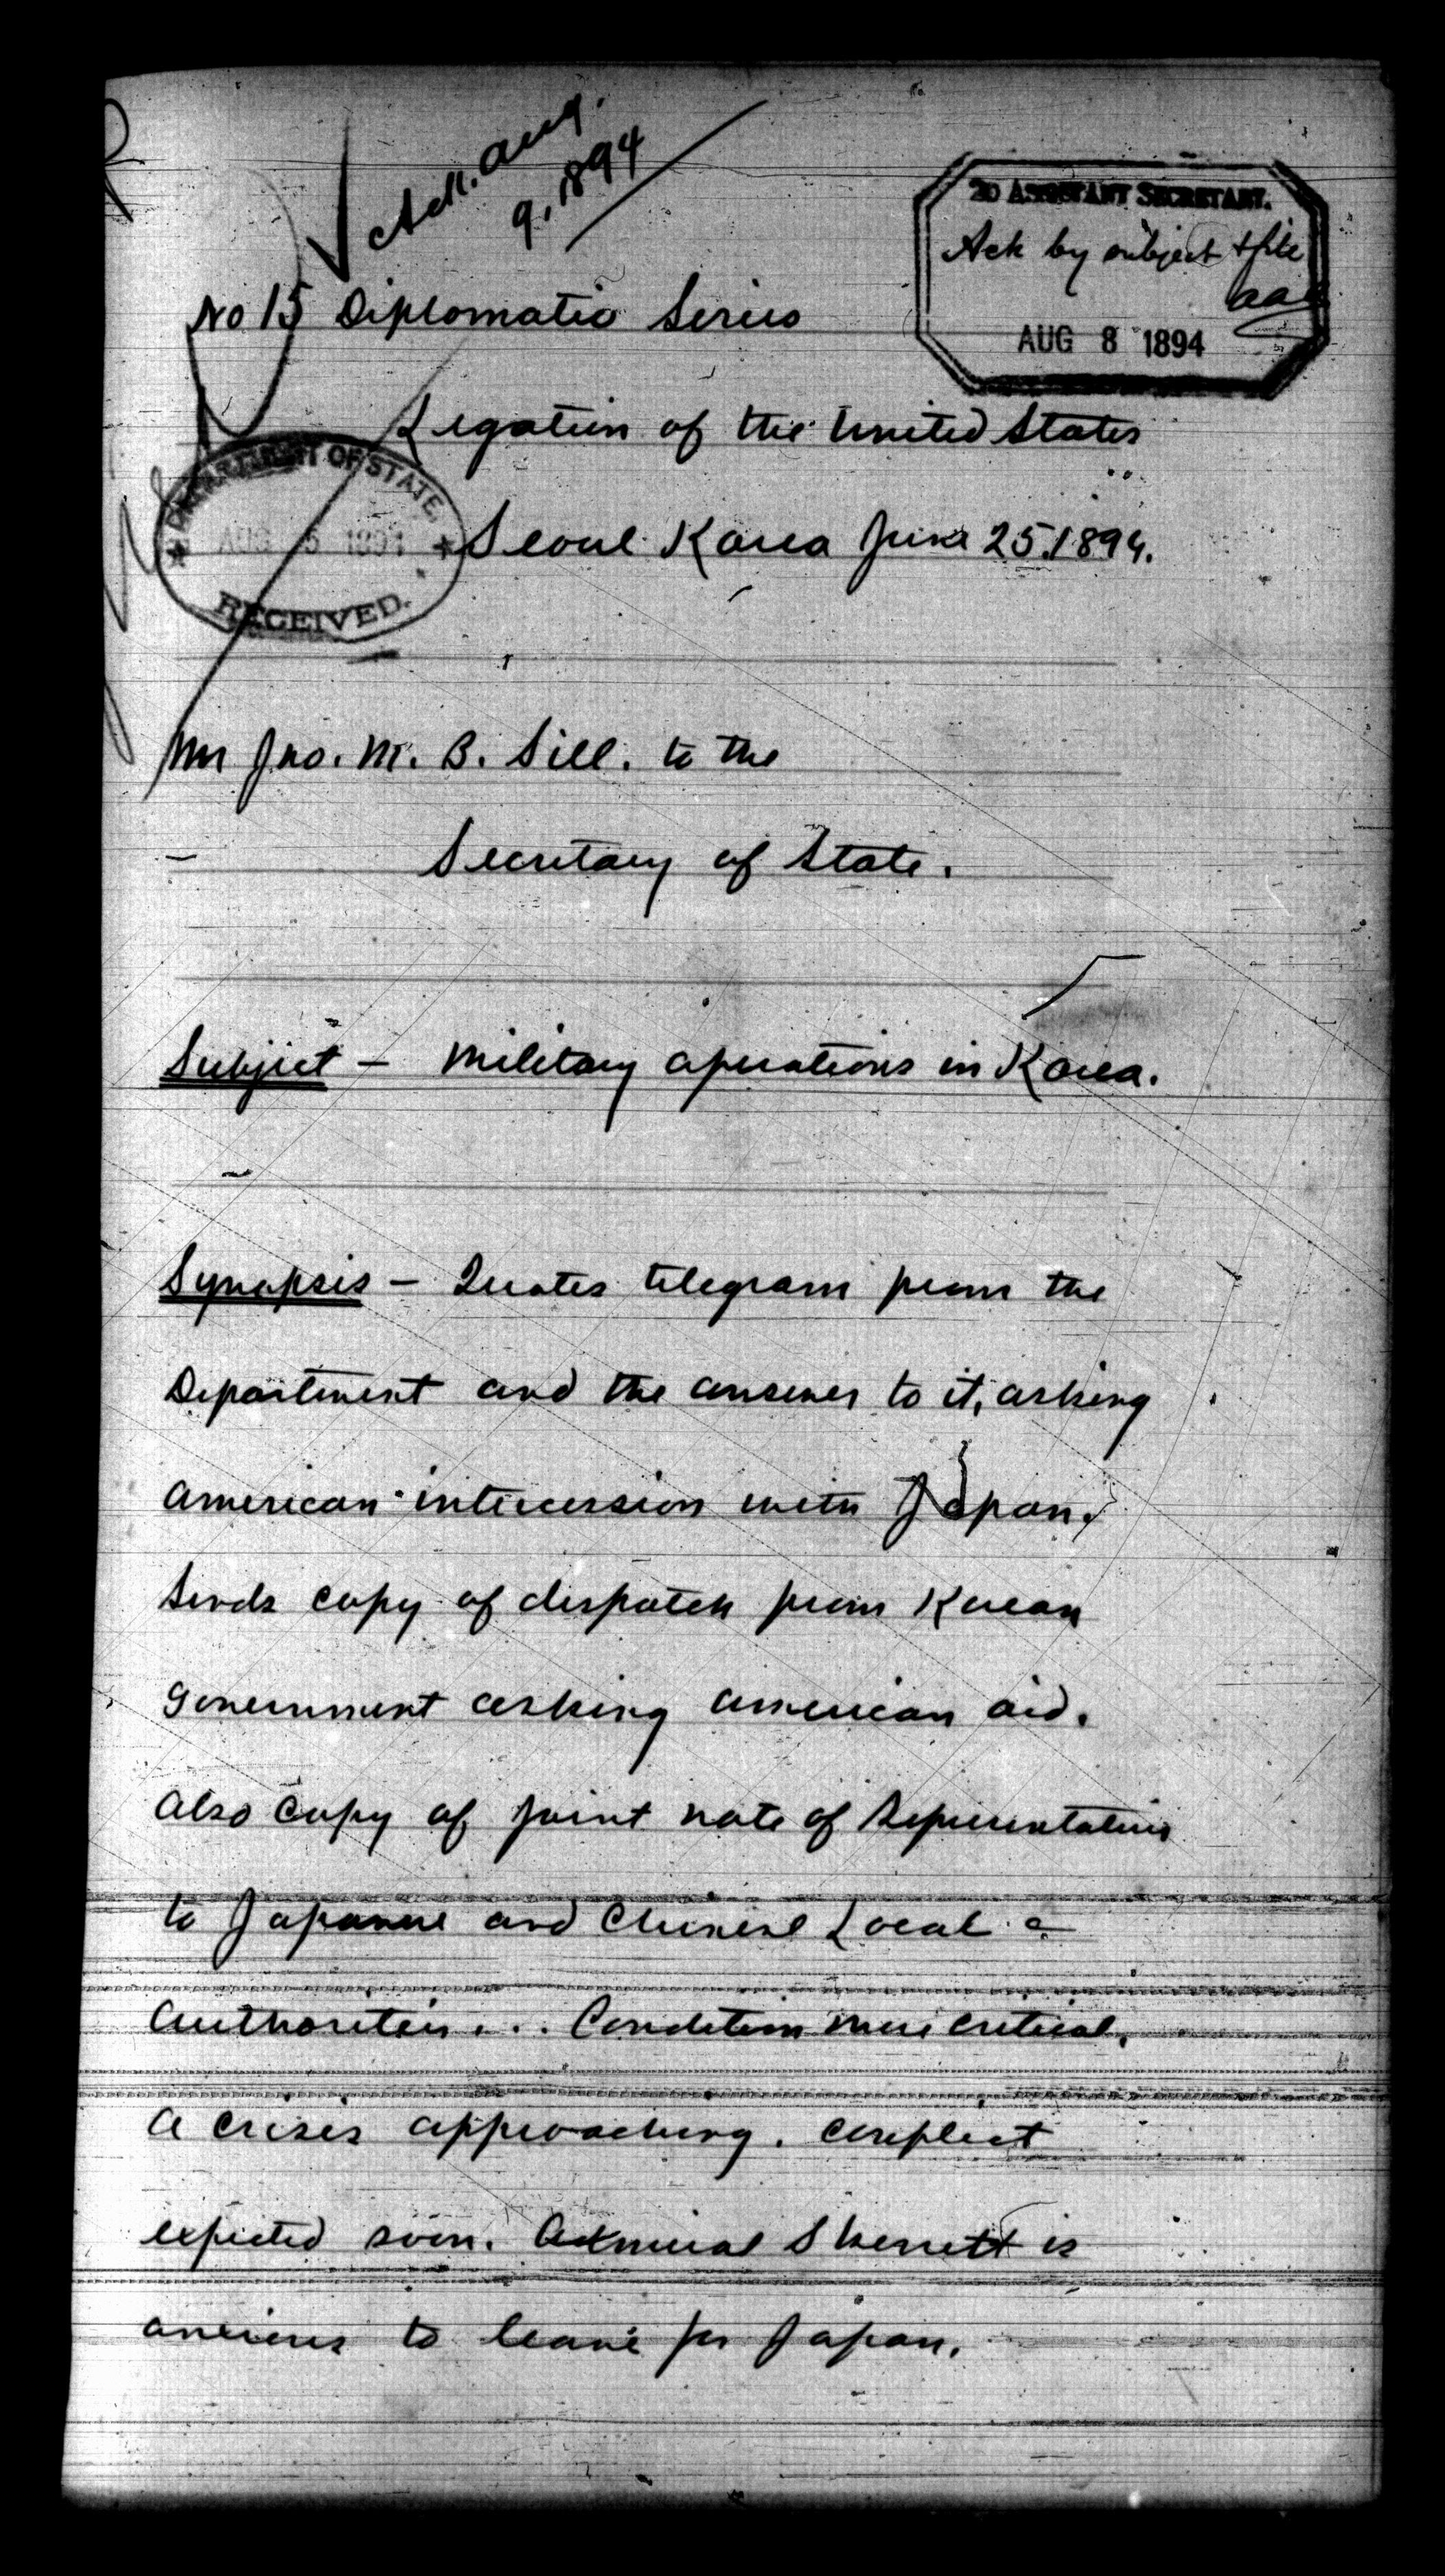 Ack. Aug.
9, 1894
2D ASSISTANT SECRETARY.
Ack by subject & file
aaa
AUG 8 1894
No 15 Diplomatic Series
Legation of the United States
DEPARTMENT OF STATE.
AUG 1894
RECEIVED.
Seoul Korea June 25. 1894.
Mr Jno. M. B. Sill. to the
Secretary of State.
Subject – Military operations in Korea.
Synopsis – Quotes telegram from the
Department and the answer to it, asking
American intercession with Japan.
Sends copy of dispatch from Korean
Government asking American aid.
Also copy of joint note of Representatives
to Japanese and Chinese Local
Authorities... Condition more critical.
A crisis approaching. Conflict
expected soon. Admiral Skerrett is
anxious to leave for Japan.